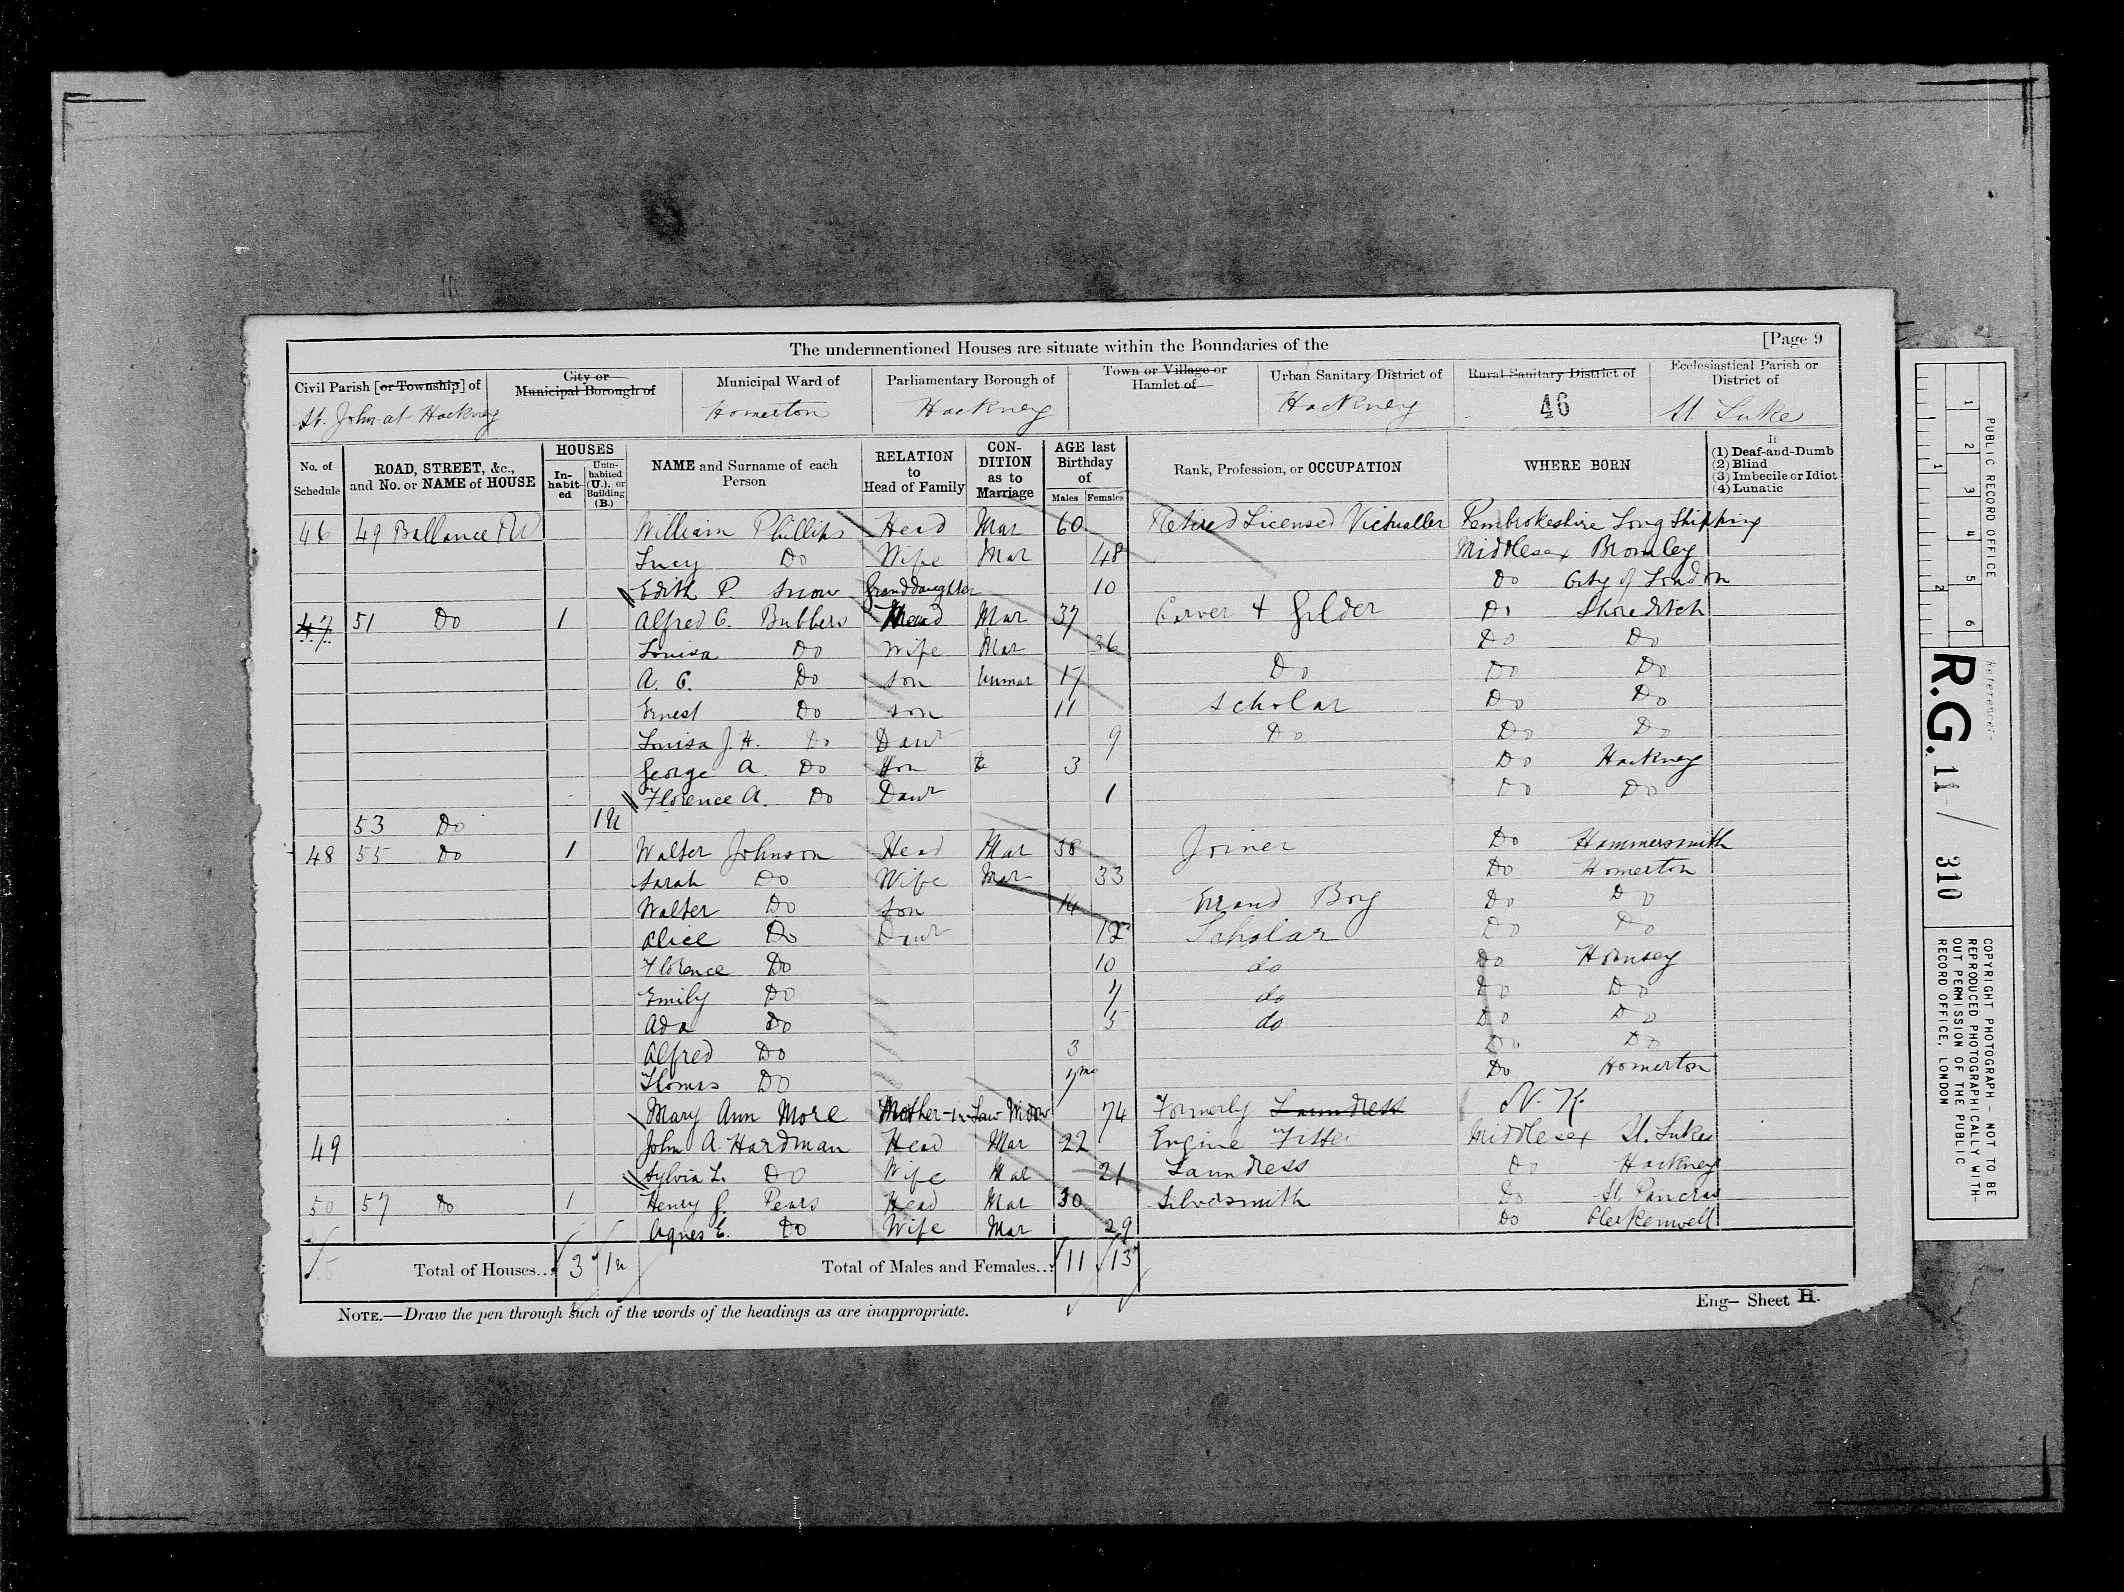 The undermentioned Houses are situate within the Boundaries of the [Page 9
Civil Parish [or Township] of City or Municipal Borough of Municipal Ward of Parliamentary Borough of Town or Village or Hamlet of Urban Sanitary District of Rural Sanitary District of Ecclesiastical Parish or District of
St. John at Hackney Homerton Hackney Hackney 46 St. Luke
No. of Schedule ROAD, STREET, &c., and No. or NAME of HOUSE HOUSES In-habit-ed Unin-habited (U.), or Building (B.) NAME and Surname of each Person RELATION to Head of Family CON-DITION as to Marriage AGE last Birthday of Males Females Rank, Profession, or OCCUPATION WHERE BORN If (1) Deaf-and-Dumb (2) Blind (3) Imbecile or Idiot (4) Lunatic
46 49 Ballance Rd William Phillips Head Mar 60 Retired Licensed Victualler Pembrokeshire Long Shipping
Lucy Do Wife Mar 48 Middlesex Bromley
Edith P. Snow Granddaughter 10 Do City of London
47 51 Do 1 Alfred C. Bubbers Head Mar 37 Carver & Gilder Do Shoreditch
Louisa Do Wife Mar 36 Do Do
A. C. Do Son Unmar 17 Do Do Do
Ernest Do Son 11 Scholar Do Do
Louisa J. H. Do Daur 9 Do Do Do
George A. Do Son 3 Do Hackney
Florence A. Do Daur 1 Do Do
53 Do 1U
48 55 Do 1 Walter Johnson Head Mar 38 Joiner Do Hammersmith
Sarah Do Wife Mar 33 Do Homerton
Walter Do Son 14 Errand Boy Do Do
Alice Do Daur 12 Scholar Do Do
Florence Do 10 do Do Hornsey
Emily Do 7 do Do Do
Ada Do 5 do Do Do
Alfred Do 3 Do Do
Thomas Do 7mo Do Homerton
Mary Ann More Mother-in-Law Widow 74 Formerly Laundress N. K.
49 John A. Hardman Head Mar 22 Engine Fitter Middlesex St. Lukes
Sylvia L. Do Wife Mar 21 Laundress Do Hackney
50 57 Do 1 Henry G. Pears Head Mar 30 Silversmith Do St. Pancras
Agnes E. Do Wife Mar 29 Do Clerkenwell
Total of Houses... 3 1u Total of Males and Females... 11 13
NOTE.—Draw the pen through such of the words of the headings as are inappropriate.
Eng— Sheet H.
PUBLIC RECORD OFFICE
1 2 3 4 5 6
1 2
Reference:-
R.G. 11 / 310
COPYRIGHT PHOTOGRAPH - NOT TO BE
REPRODUCED PHOTOGRAPHICALLY WITH-
OUT PERMISSION OF THE PUBLIC
RECORD OFFICE, LONDON